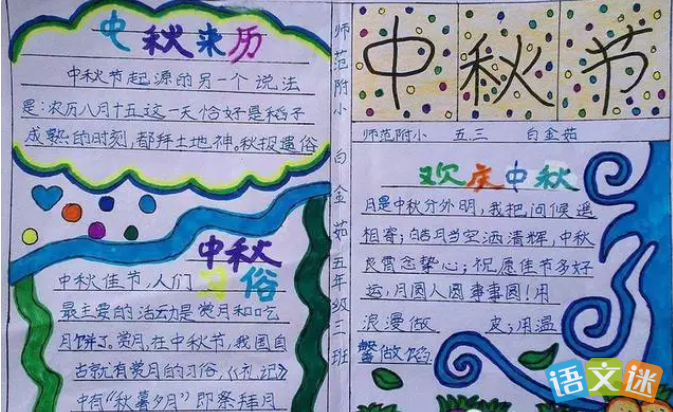 中秋来历
中秋节起源的另一个说法
是:农历八月十五这一天恰好是稻子
成熟的时刻,都拜土地神。秋报遗俗
中秋
习俗
中秋佳节,人们
最主要的活动是赏月和吃
月饼了。赏月,在中秋节,我国自
古就有赏月的习俗,《礼记》
中有“秋暮夕月”即祭拜月
师范附小 白金茹 五年级三班
中秋节
师范附小 五.三 白金茹
欢庆中秋
月是中秋分外明,我把问候遥
相寄;皓月当空洒清辉,中秋
良宵念挚心;祝愿佳节多好
运,月圆人圆事事圆!用
浪漫做 皮;用温
馨做馅
语文迷